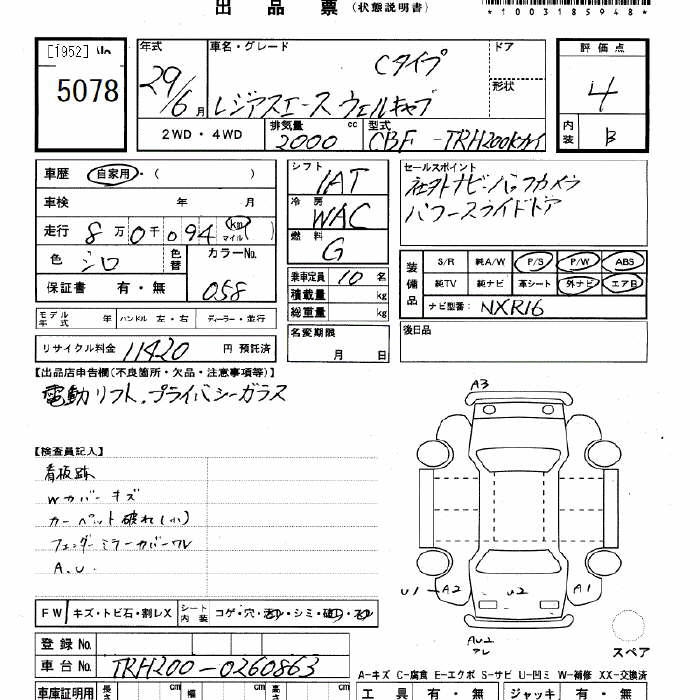 出品票（状態説明書）
*1003185948*
[1952]
5078
年式 29/6月
車名・グレード Cタイプ
レジアスエース ウェルキャブ
ドア
形状
2WD・4WD
排気量 2000 cc
型式 CBF-TRH200Kカイ
評価点 4
内装 B
車歴 自家用・( )
車検 年 月
走行 8万0千094 km マイル( )
色 シロ 色替
カラーNo. 058
保証書 有・無
シフト IAT
冷房 WAC
燃料 G
乗車定員 10 名
積載量 kg
総重量 kg
名変期限 月 日
セールスポイント
社外ナビ・バックカメラ
パワースライドドア
装備品 S/R 純A/W P/S P/W ABS
純TV 純ナビ 革シート 外ナビ エアB
ナビ型番: NXR16
後日品
モデル年式 年 ハンドル 左・右 ディーラー・並行
リサイクル料金 11420 円 預託済
【出品店申告欄(不良箇所・欠品・注意事項等)】
電動リフト.プライバシーガラス
【検査員記入】
看板跡
Wカバーキズ
カーペット破れ(小)
フェンダーミラーカバーワレ
A.U.
A3
U1-A2
U2
A1
AU2
スペア
FW キズ・トビ石・割レX
シート内装 コゲ・穴・シミ・
登録No.
車台No. TRH200-0260863
A-キズ C-腐食 E-エクボ S-サビ U-凹ミ W-補修 XX-交換済
車庫証明用 長さ cm 幅 cm 高さ cm
工具 有・無 ジャッキ 有・無